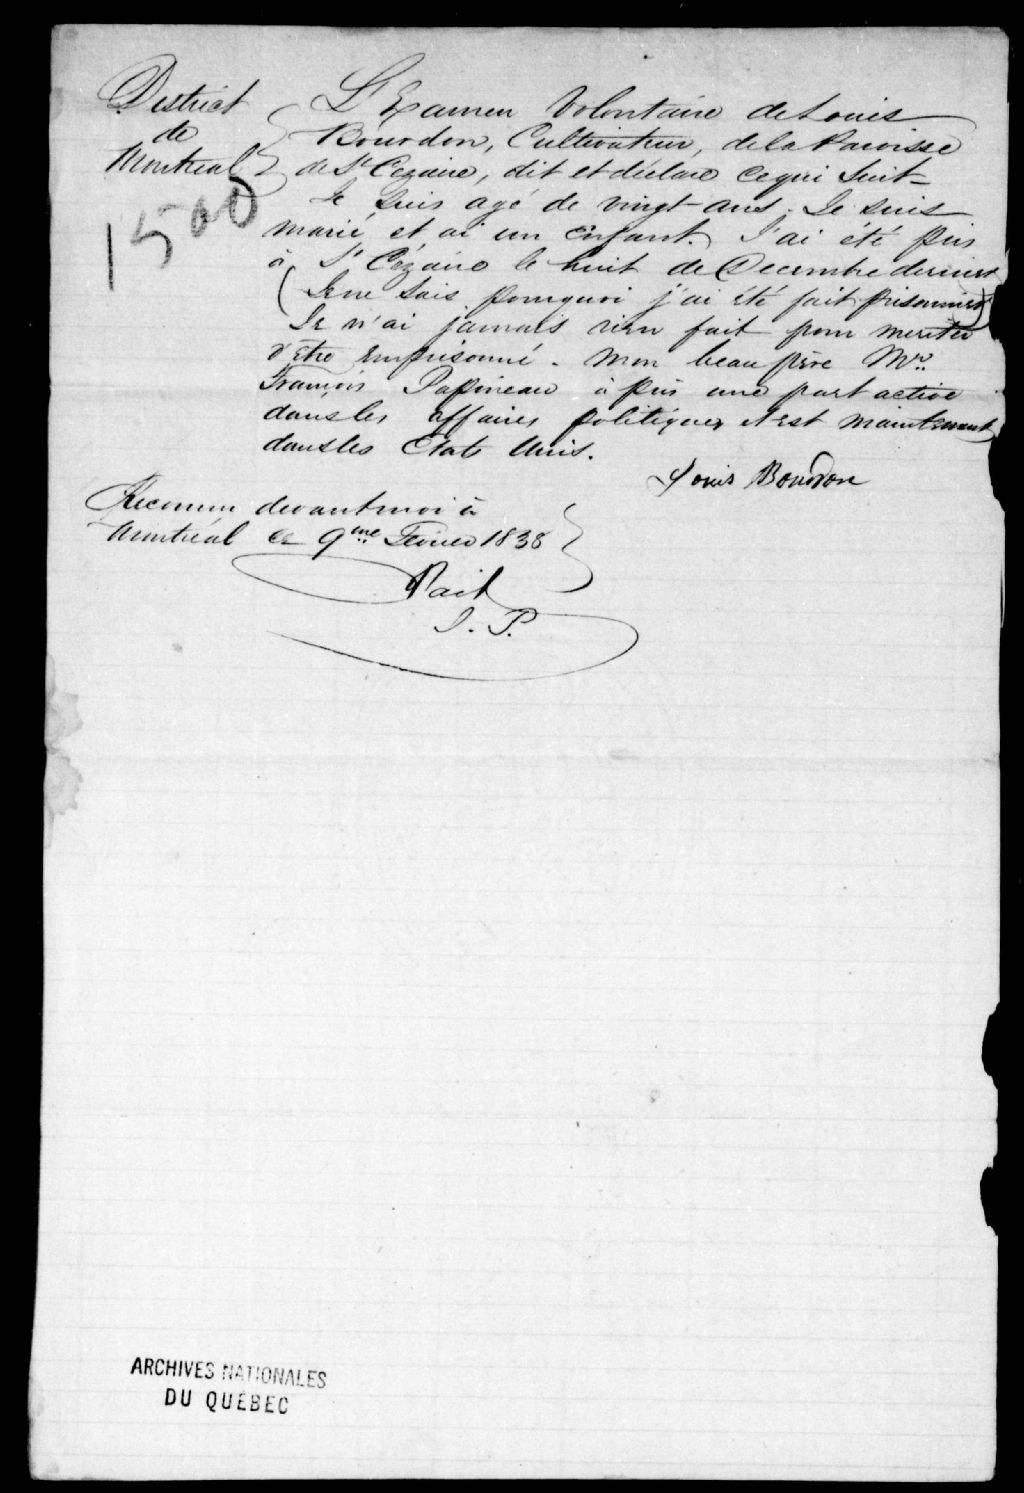 District
de
Montreal
1500
L'Examen Volontaire de Louis
Bourdon, Cultivateur, de la Paroisse
de St Cezaire, dit et déclare ce qui Suit-
Je suis agé de vingt ans. Je suis
marié et ai un Enfant. J'ai été pris
à St Cézaire le huit de Decembre dernier
(Je ne sais pourquoi j'ai été fait prisonnier)
Je n'ai jamais rien fait pour meriter
d'être emprisonné. Mon beau père Mr.
François Papineau à pris une part active
dans les affaires politiques et est maintenant
dans les Etats Unis.
Louis Bourdon
Reconnu devant moi à
Montréal ce 9me Fevrier 1838
J. P.
ARCHIVES NATIONALES
DU QUÉBEC